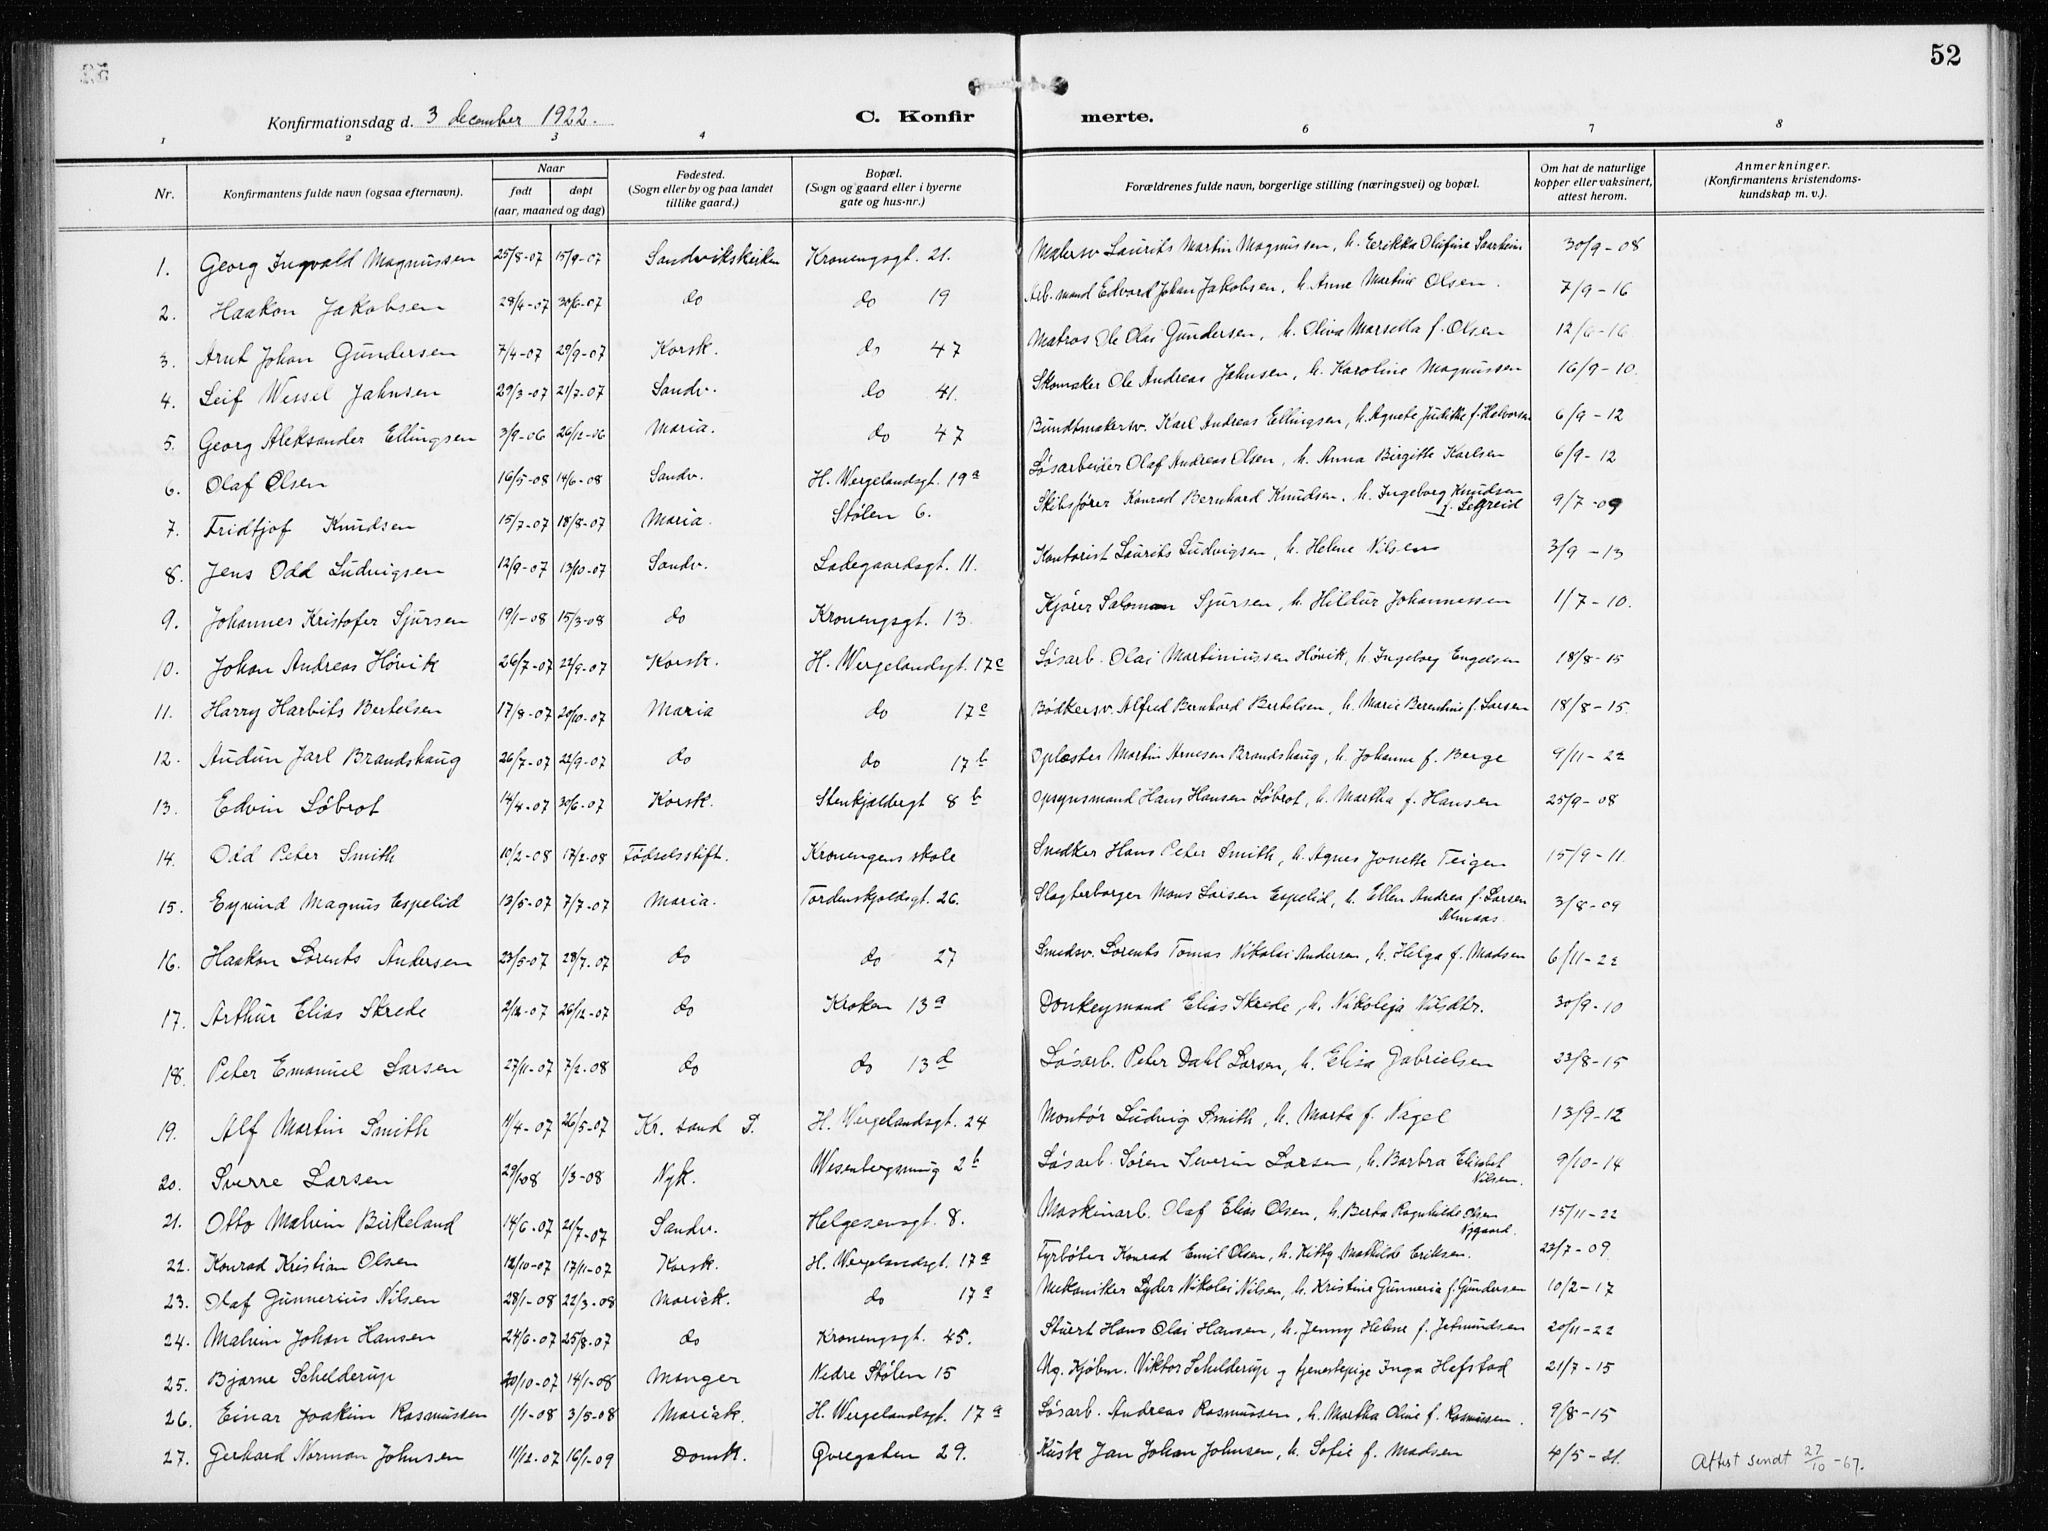 52
Konfirmationsdag d. 3 december 1922.
C. Konfir merte.
1 2 3 4 5 6 7 8
Nr. Konfirmantens fulde navn (ogsaa efternavn). Naar født døpt (aar, maaned og dag) Fødested. (Sogn eller by og paa landet tillike gaard.) Bopæl. (Sogn og gaard eller i byerne gate og hus-nr.) Forældrenes fulde navn, borgerlige stilling (næringsvei) og bopæl. Om hat de naturlige kopper eller vaksinert, attest herom. Anmerkninger. (Konfirmantens kristendoms-kundskap m. v.).
1. Georg Ingvald Magnussen 25/8-07 15/9-07 Sandvikskirken Kronengsgt. 21. Malersv Laurits Martin Magnussen, h. Eerikka Olufine Saxtheim 30/9-08
2. Haakon Jakobsen 28/4-07 30/6-07 do do 19 Arb.mand Edvard Johan Jakobsen, h. Anne Martine Olsen. 7/9-16
3. Arnt Johan Gundersen 7/4-07 29/9-07 Korsk. do 47 Matros Ole Olai Gundersen, h. Oliva Marsella f. Olsen 12/6-16
4. Leif Wessel Jahnsen 29/3-07 21/7-07 Sandv. do 41. Skomaker Ole Andreas Jahnsen, h. Karoline Magnussen 16/9-10.
5. Georg Aleksander Ellingsen 3/9-06 26/12-06 Maria. do 47 Bundtmakersv. Karl Andreas Ellingsen, h. Agnete Judithe f. Halvorsen 6/9-12
6. Olaf Olsen 16/5-08 14/6-08 Sandv. H. Wergelandsgt. 19a Løsarbeider Olaf Andreas Olsen, h. Anna Birgitte Karlsen 6/9-12
7. Fridtjof Knudsen 15/7-07 18/8-07 Maria. Stølen 6. Skibsfører Konrad Bernhard Knudsen. h. Ingeborg Knudsen f. Setreid 9/7-09
8. Jens Odd Ludvigsen 12/9-07 13/10-07 Sandv. Ladegaardsgt. 11. Kontorist Laurits Ludvigsen, h. Helene Nilsen 3/9-13
9. Johannes Kristofer Sjursen 19/1-08 15/3-08 do Kronengsgt. 13. Kjører Salomon Sjursen, h. Hildur Johannessen 1/7-10.
10. Johan Andreas Høvik 26/7-07 22/9-07 Korsk. H. Wergelandsgt. 17c Løsarb. Olai Martiniussen Høvik, h. Ingeborg Engelsen 18/8-15
11. Harry Harbits Bertelsen 17/8-07 20/10-07 Maria do 17c Bødkersv. Alfred Bernhard Bertelsen, h. Marie Berentine f. Larsen 18/8-15.
12. Audun Jarl Brandshaug 26/7-07 22/9-07 do do 17b Oplæster Martin Arnesen Brandshaug, h. Johanne f. Berge 9/11-22
13. Edvin Løbrot 14/4-07 30/6-07 Korsk. Stenkjælbergt 8b Opsynsmand Hans Hansen Løbrot, h. Martha f. Hansen 25/9-08
14. Odd Peter Smith 10/2-08 17/2-08 Fødselsstift. Kronengens skole Snedker Hans Peter Smith, h. Agnes Jonette Teigen 15/9-11.
15. Eyvind Magnus Espelid 13/5-07 7/7-07 Maria. Tordenskjoldsgt. 26. Slagterborger Mons Larsen Espelid, h. Ellen Andrea f. Larsen Almaas. 3/8-09
16. Haakon Lorents Andersen 23/5-07 28/7-07 do do 27 Smedsv. Lorents Tomas Nikolai Andersen, h. Helga f. Madsen 6/11-22
17. Arthur Elias Skrede 2/12-07 26/12-07 do Kroken 13a Donkeymand Elias Skrede, h. Nikoleja Nilsdtr. 30/9-10
18. Peter Emanuel Larsen 27/11-07 7/2-08 do do 13d Løsarb. Peter Dahl Larsen, h. Elisa Gabrielsen 23/8-15
19. Alf Martin Smith 11/4-07 26/5-07 Kr. sand S. H. Wergelandsgt. 24 Montør Ludvig Smith, h. Marta f. Nagel 13/9-12
20. Sverre Larsen 29/1-08 1/3-08 Nyk. Wesenbergsmug 2b Løsarb. Søren Severin Larsen, h. Barbra Elisabet Nilsen. 9/10-14
21. Otto Malvin Birkeland 14/6-07 21/7-07 Sandv. Helgesensgt. 8. Maskinarb. Olaf Elias Olsen, h. Berta Ragnhilde Olsen Nygaard. 15/11-22
22. Konrad Kristian Olsen 12/10-07 17/11-07 Korsk. H. Wergelandsgt. 17a Fyrbøter Konrad Emil Olsen, h. Kitty Mathilde Eriksen. 23/7-09.
23. Olaf Gunnerius Nilsen 28/1-08 22/3-08 Mariak. do 17a Mekaniker Lyder Nikolai Nilsen, h. Kristine Gunneria f. Gundersen 10/2-17
24. Malvin Johan Hansen 24/6-07 25/8-07 do Kronengsgt. 45. Stuert Hans Olai Hansen, h. Jenny Helene f. Jetmundsen 20/11-22
25. Bjarne Schelderup 20/10-07 14/1-08 Manger Nedre Stølen 15 Ug. Kjøbm. Viktor Schelderup og tjenestepige Inga Hefstad 21/7-15
26. Einar Joakim Rasmussen 1/1-08 3/5-08 Mariak. H. Wergelandsgt. 17a Løsarb. Andreas Rasmussen, h. Martha Oline f. Rasmussen. 9/8-15
27. Gerhard Norman Johnsen 11/12-07 16/1-09 Domk. Øvregaten 29. Kusk Jan Johan Johnsen, h. Sofie f. Madsen 4/5-21. Attest sendt 27/10-67.